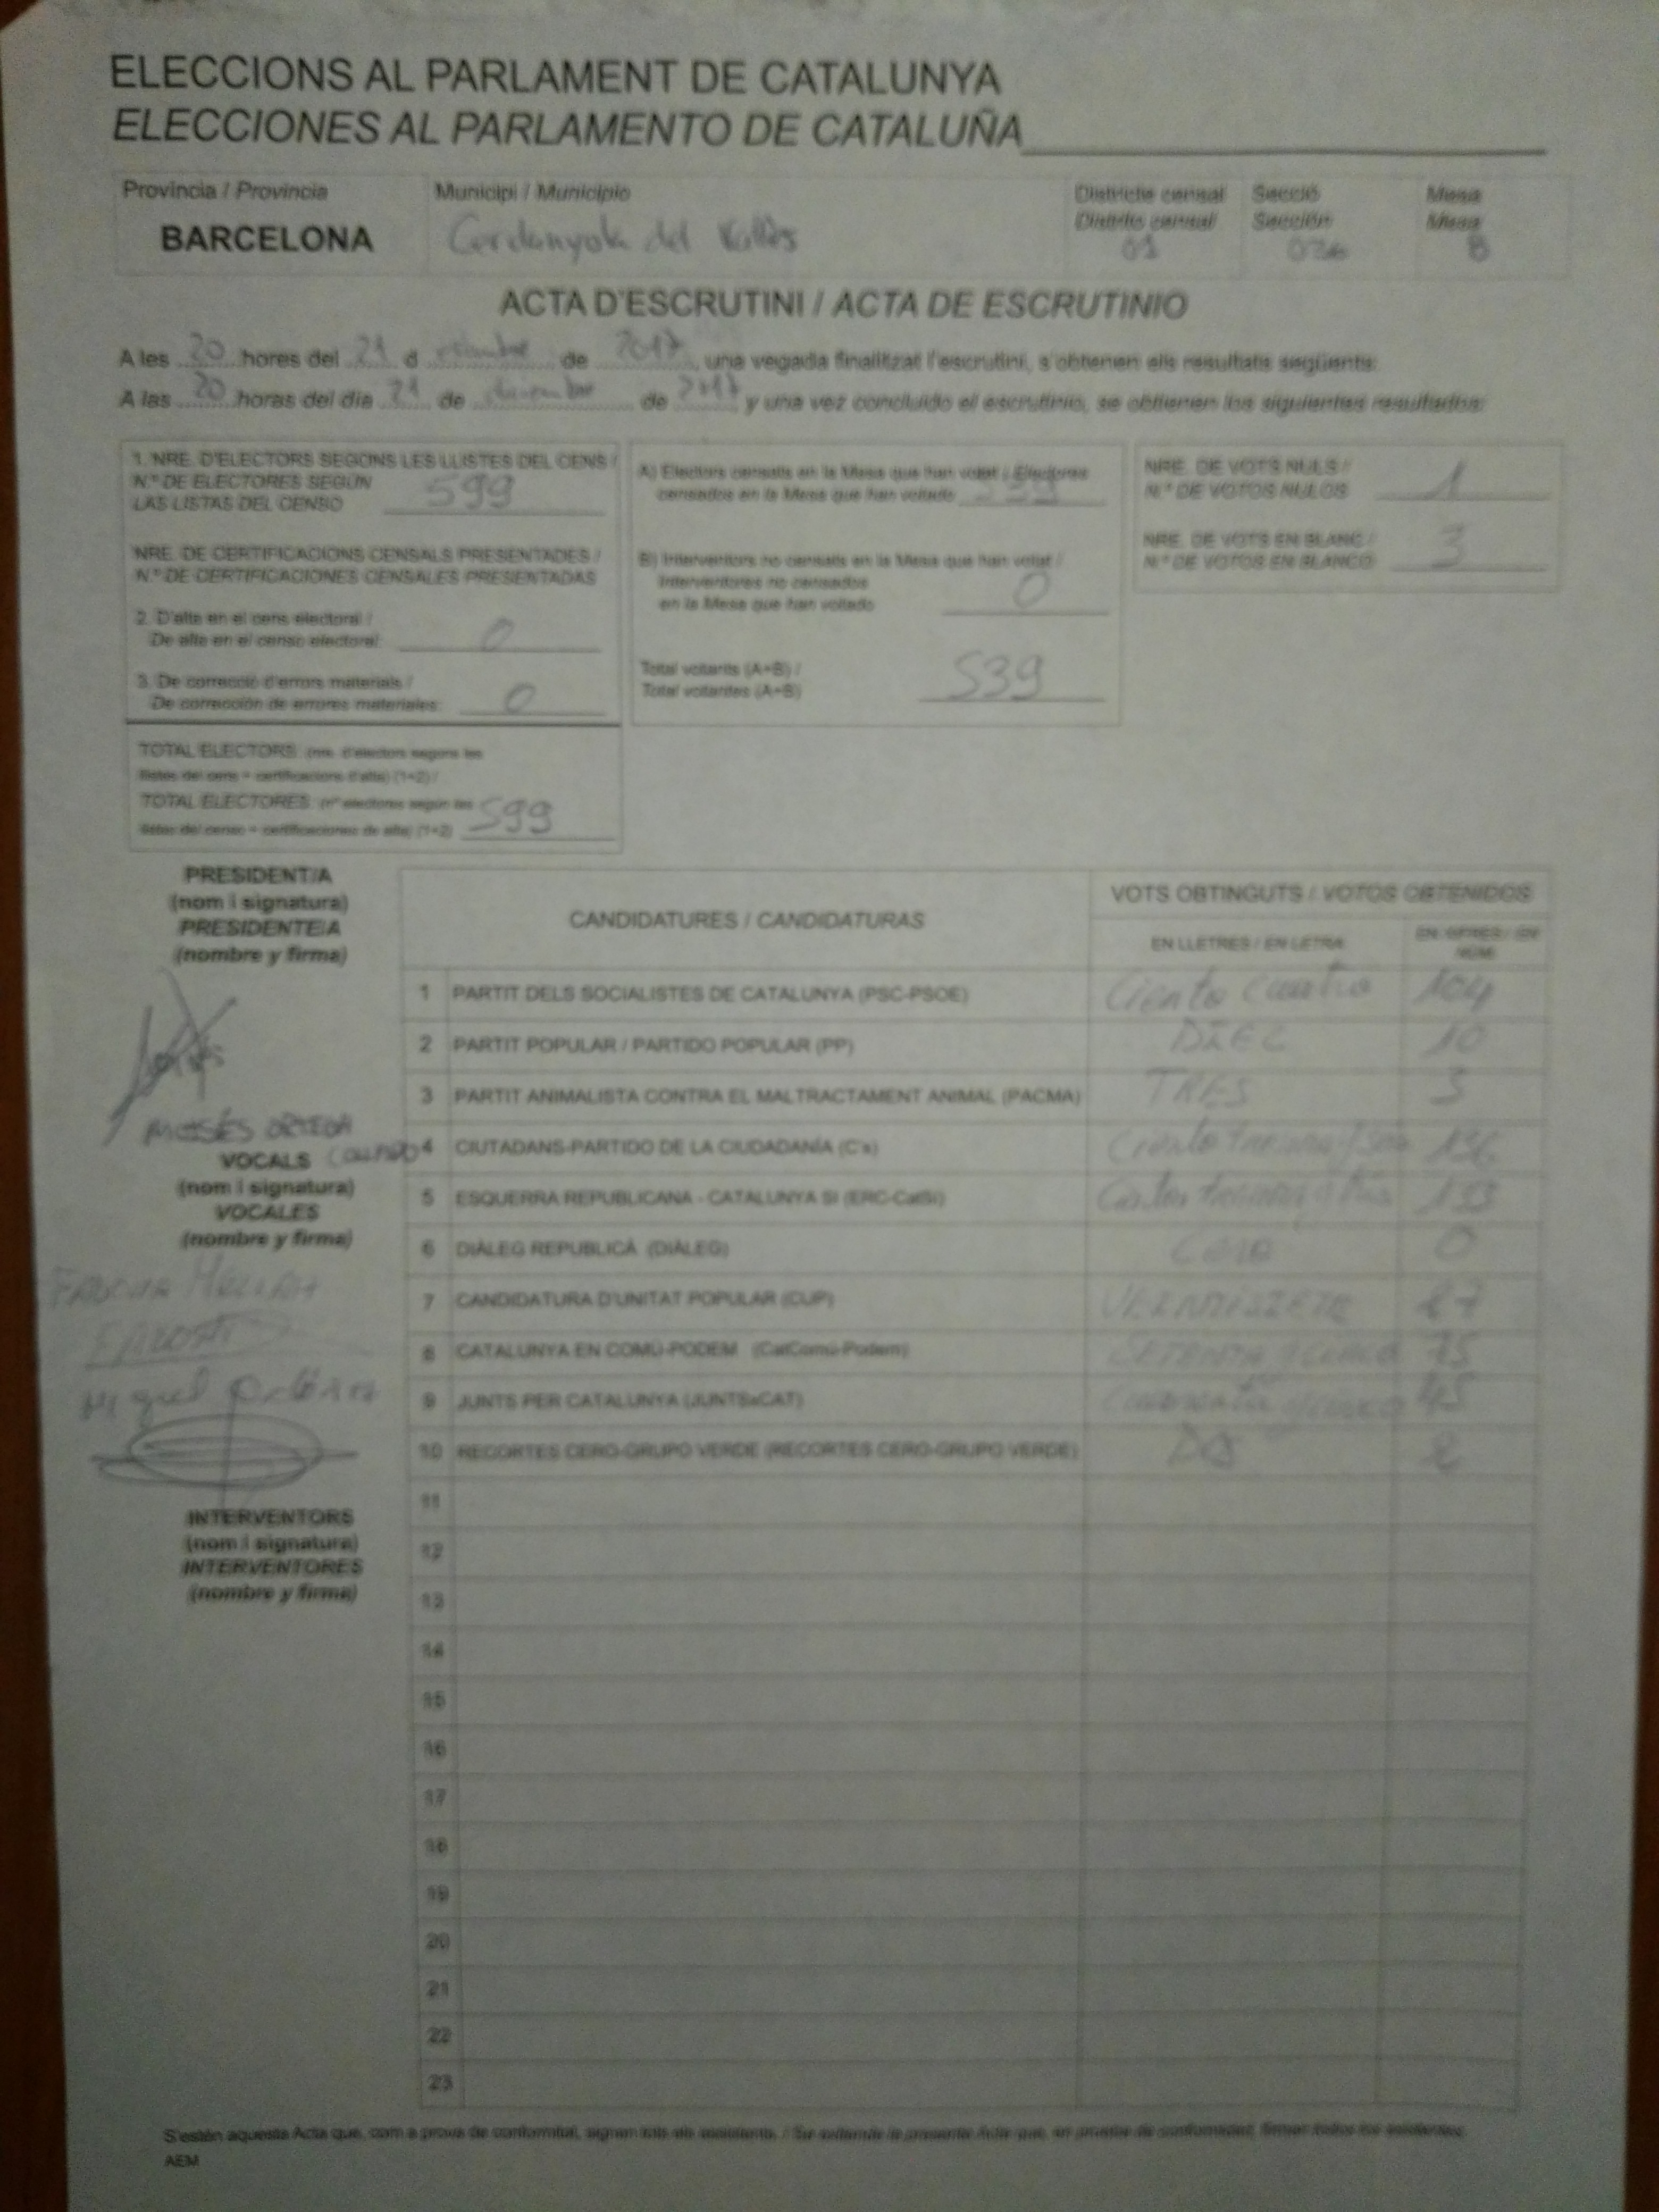 ELECCIONS AL PARLAMENT DE CATALUNYA
ELECCIONES AL PARLAMENTO DE CATALUÑA
Provincia / Provincia
BARCELONA
Municipi / Municipio
Cerdanyola del Vallès
Districte censal
Distrito censal
01
Secció
Sección
Mesa
Mesa
B
ACTA D'ESCRUTINI / ACTA DE ESCRUTINIO
A les 20 hores del 21 d de 2017, una vegada finalitzat l'escrutini, s'obtenen els resultats següents:
A las 20 horas del día 21 de diciembre de 2017 y una vez concluido el escrutinio, se obtienen los siguientes resultados:
1. NRE. D'ELECTORS SEGONS LES LLISTES DEL CENS /
N.º DE ELECTORES SEGÚN
LAS LISTAS DEL CENSO 599
NRE. DE CERTIFICACIONS CENSALS PRESENTADES /
N.º DE CERTIFICACIONES CENSALES PRESENTADAS
2. D'alta en el cens electoral /
De alta en el censo electoral: 0
3. De correcció d'errors materials /
De corrección de errores materiales: 0
TOTAL ELECTORS: (nre. d'electors segons les
llistes del cens + certificacions d'alta) (1+2) /
TOTAL ELECTORES: (nº electores según las
listas del censo + certificaciones de alta) (1+2) 599
A) Electors censats en la Mesa que han votat / Electores
censados en la Mesa que han votado 539
B) Interventors no censats en la Mesa que han votat /
Interventores no censados
en la Mesa que han votado 0
Total votants (A+B) /
Total votantes (A+B) 539
NRE. DE VOTS NULS /
N.º DE VOTOS NULOS 1
NRE. DE VOTS EN BLANC /
N.º DE VOTOS EN BLANCO 3
PRESIDENT/A
(nom i signatura)
PRESIDENTE/A
(nombre y firma)
MOISÉS ORTEGA
VOCALS
(nom i signatura)
VOCALES
(nombre y firma)
INTERVENTORS
(nom i signatura)
INTERVENTORES
(nombre y firma)
CANDIDATURES / CANDIDATURAS
VOTS OBTINGUTS / VOTOS OBTENIDOS
EN LLETRES / EN LETRA
EN XIFRES / EN NÚM.
1 PARTIT DELS SOCIALISTES DE CATALUNYA (PSC-PSOE) Ciento cuatro 104
2 PARTIT POPULAR / PARTIDO POPULAR (PP) DIEZ 10
3 PARTIT ANIMALISTA CONTRA EL MALTRACTAMENT ANIMAL (PACMA) TRES 3
4 CIUTADANS-PARTIDO DE LA CIUDADANÍA (C's) Ciento treinta y seis 136
5 ESQUERRA REPUBLICANA - CATALUNYA SÍ (ERC-CatSí) 133
6 DIÀLEG REPUBLICÀ (DIÀLEG) Cero 0
7 CANDIDATURA D'UNITAT POPULAR (CUP) VEINTISIETE 27
8 CATALUNYA EN COMÚ-PODEM (CatComú-Podem) SETENTA y CINCO 75
9 JUNTS PER CATALUNYA (JUNTSxCAT) Cuarenta y cinco 45
10 RECORTES CERO-GRUPO VERDE (RECORTES CERO-GRUPO VERDE) DOS 2
11
12
13
14
15
16
17
18
19
20
21
22
23
S'estén aquesta Acta que, com a prova de conformitat, signen tots els assistents. / Se extiende la presente Acta que, en prueba de conformidad, firman todos los asistentes.
AEM